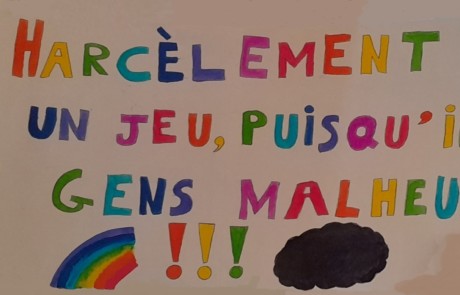 HARCÈLEMENT
UN JEU, PUISQU'i
GENS MALHEU
!!!